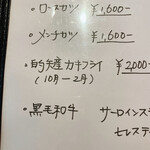 ・ロースカツ ¥1,600-
・メンチカツ ¥1,600-
・的矢産カキフライ ¥2,000-
(10月ー2月)
・黒毛和牛 サーロインス
ヒレステ